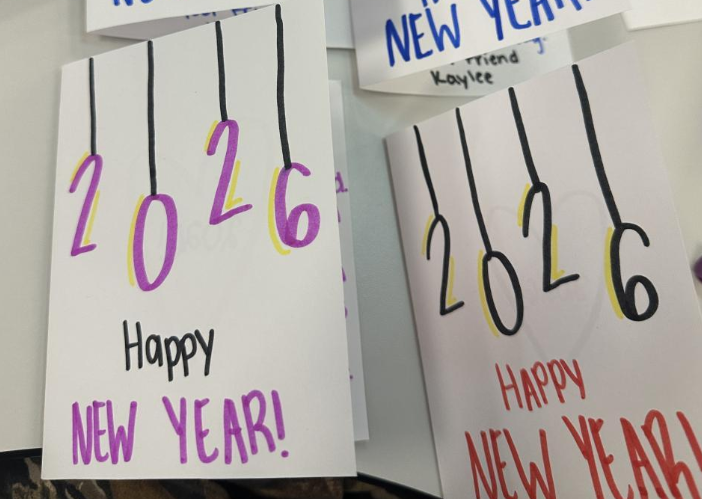 NEW YEAR!
Friend
Kaylee
2026
Happy
NEW YEAR!
2026
HAPPY
NEW YEAR!